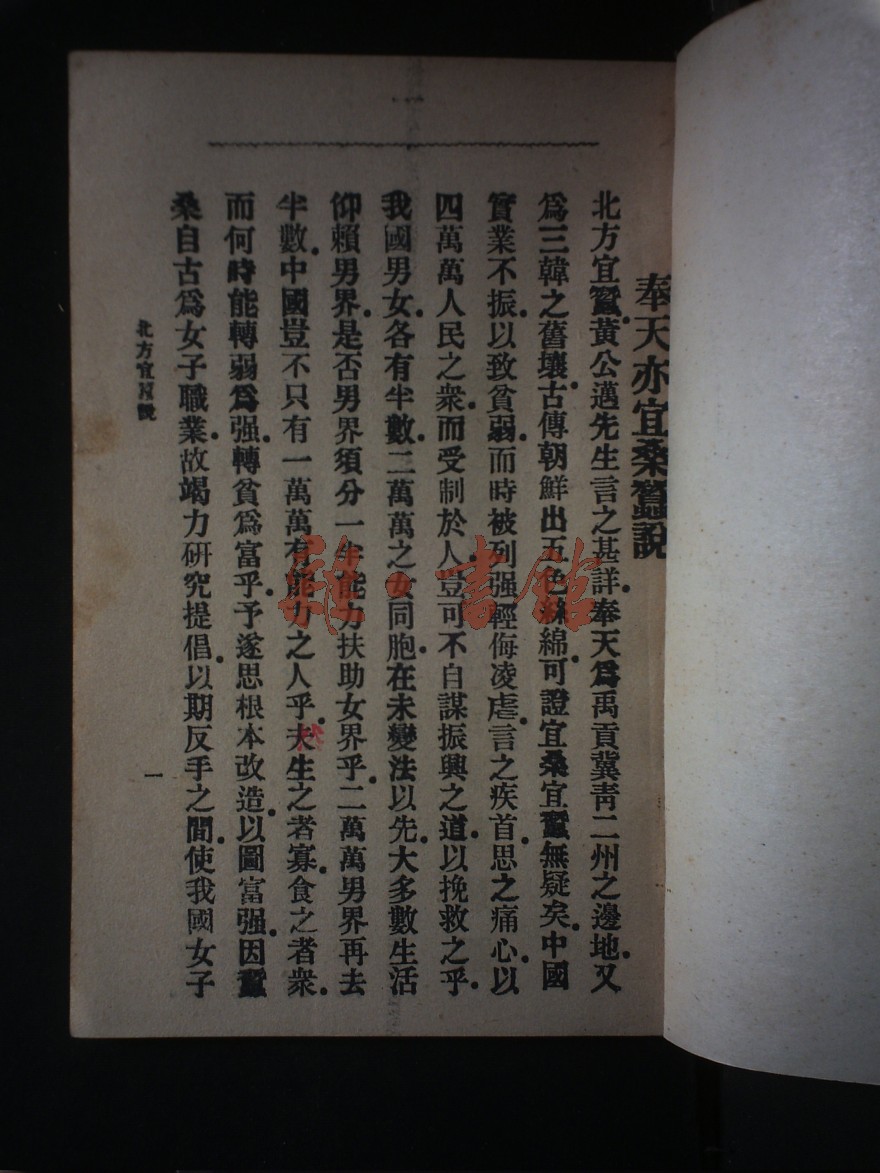 奉天亦宜桑蠶說
北方宜蠶。黃公邁先生言之甚詳。奉天爲禹貢冀靑二州之邊地。又
爲三韓之舊壤。古傳朝鮮出五色絲綿。可證宜桑宜蠶無疑矣。中國
實業不振。以致貧弱。而時被列强輕侮凌虐。言之疾首。思之痛心。以
四萬萬人民之衆。而受制於人。豈可不自謀振興之道。以挽救之乎。
我國男女。各有半數。二萬萬之女同胞。在未變法以先。大多數生活
仰賴男界。是否男界須分一半能力扶助女界乎。二萬萬男界再去
半數。中國豈不只有一萬萬有能力之人乎。夫生之者寡。食之者衆。
而何時能轉弱爲强。轉貧爲富乎。予遂思根本改造。以圖富强。因蠶
桑自古爲女子職業。故竭力研究提倡。以期反手之間。使我國女子
北方宜說
一
雜·書館